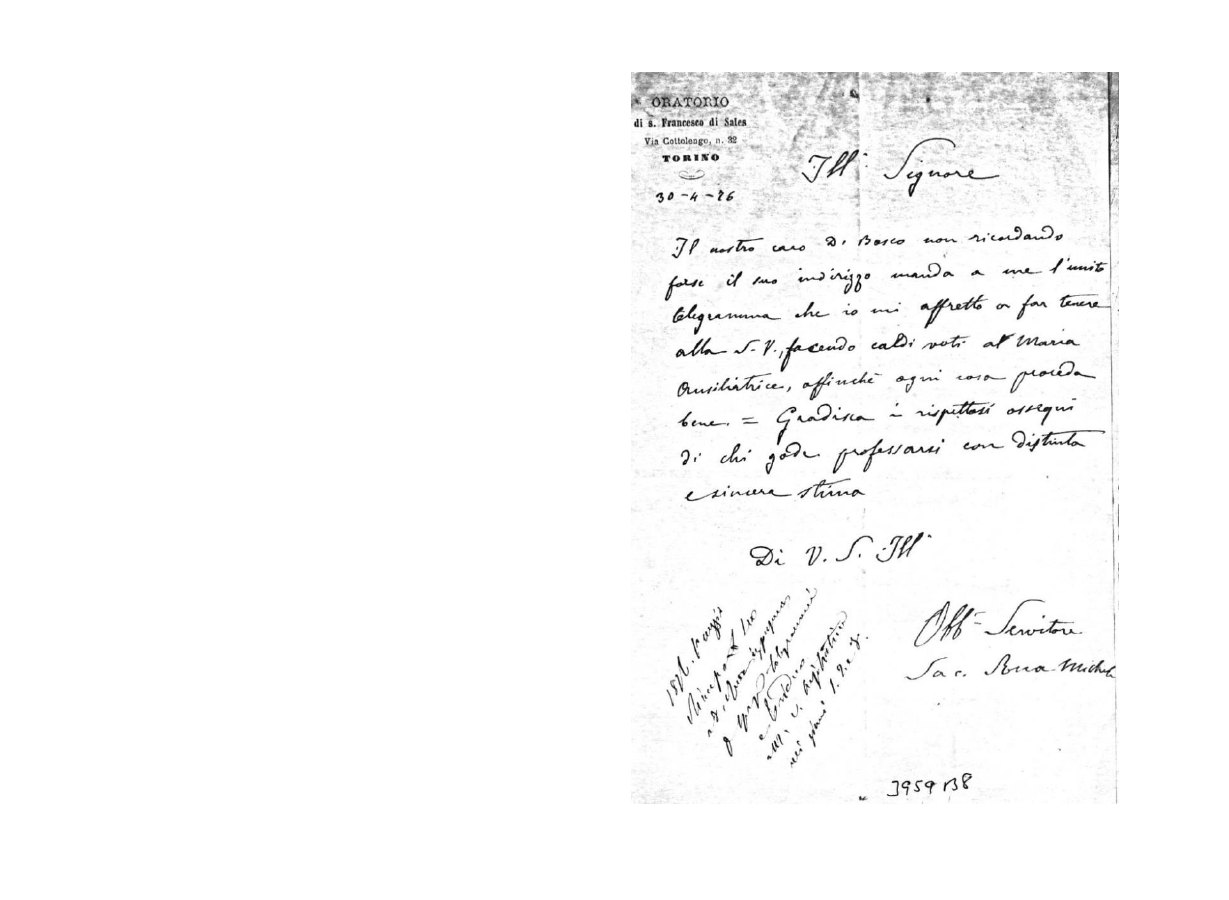 ORATORIO
di s. Francesco di Sales
Via Cottolengo, n. 32
TORINO
30-4-76
Ill. Signore
Il nostro caro D. Bosco non ricordando
forse il suo indirizzo manda a me l'unito
telegramma che io mi affretto a far tenere
alla S. V., facendo caldi voti a Maria
Ausiliatrice, affinchè ogni cosa proceda
bene. = Gradisca i rispettosi ossequi
di chi gode professarsi con distinta
e sincera stima
Di V. S. Ill.
Obb. Servitore
Sac. Rua Michele
1876.
telegrammi
nei giorni 1. 2. e 3.
3959 B8